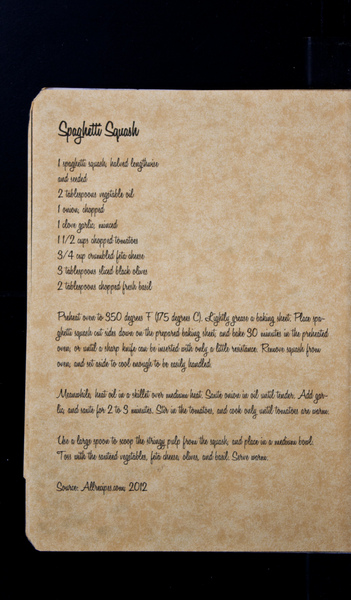 Spaghetti Squash
1 spaghetti squash, halved lengthwise
and seeded
2 tablespoons vegetable oil
1 onion, chopped
1 clove garlic, minced
1 1/2 cups chopped tomatoes
3/4 cup crumbled feta cheese
3 tablespoons sliced black olives
2 tablespoons chopped fresh basil
Preheat oven to 350 degrees F (175 degrees C). Lightly grease a baking sheet. Place spa-
ghetti squash cut sides down on the prepared baking sheet, and bake 30 minutes in the preheated
oven, or until a sharp knife can be inserted with only a little resistance. Remove squash from
oven, and set aside to cool enough to be easily handled.
Meanwhile, heat oil in a skillet over medium heat. Saute onion in oil until tender. Add gar-
lic, and saute for 2 to 3 minutes. Stir in the tomatoes, and cook only until tomatoes are warm.
Use a large spoon to scoop the stringy pulp from the squash, and place in a medium bowl.
Toss with the sauteed vegetables, feta cheese, olives, and basil. Serve warm.
Source: Allrecipes.com, 2012